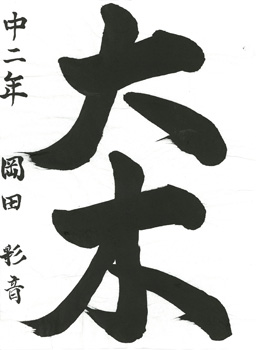 大木
中二年 岡田彩音